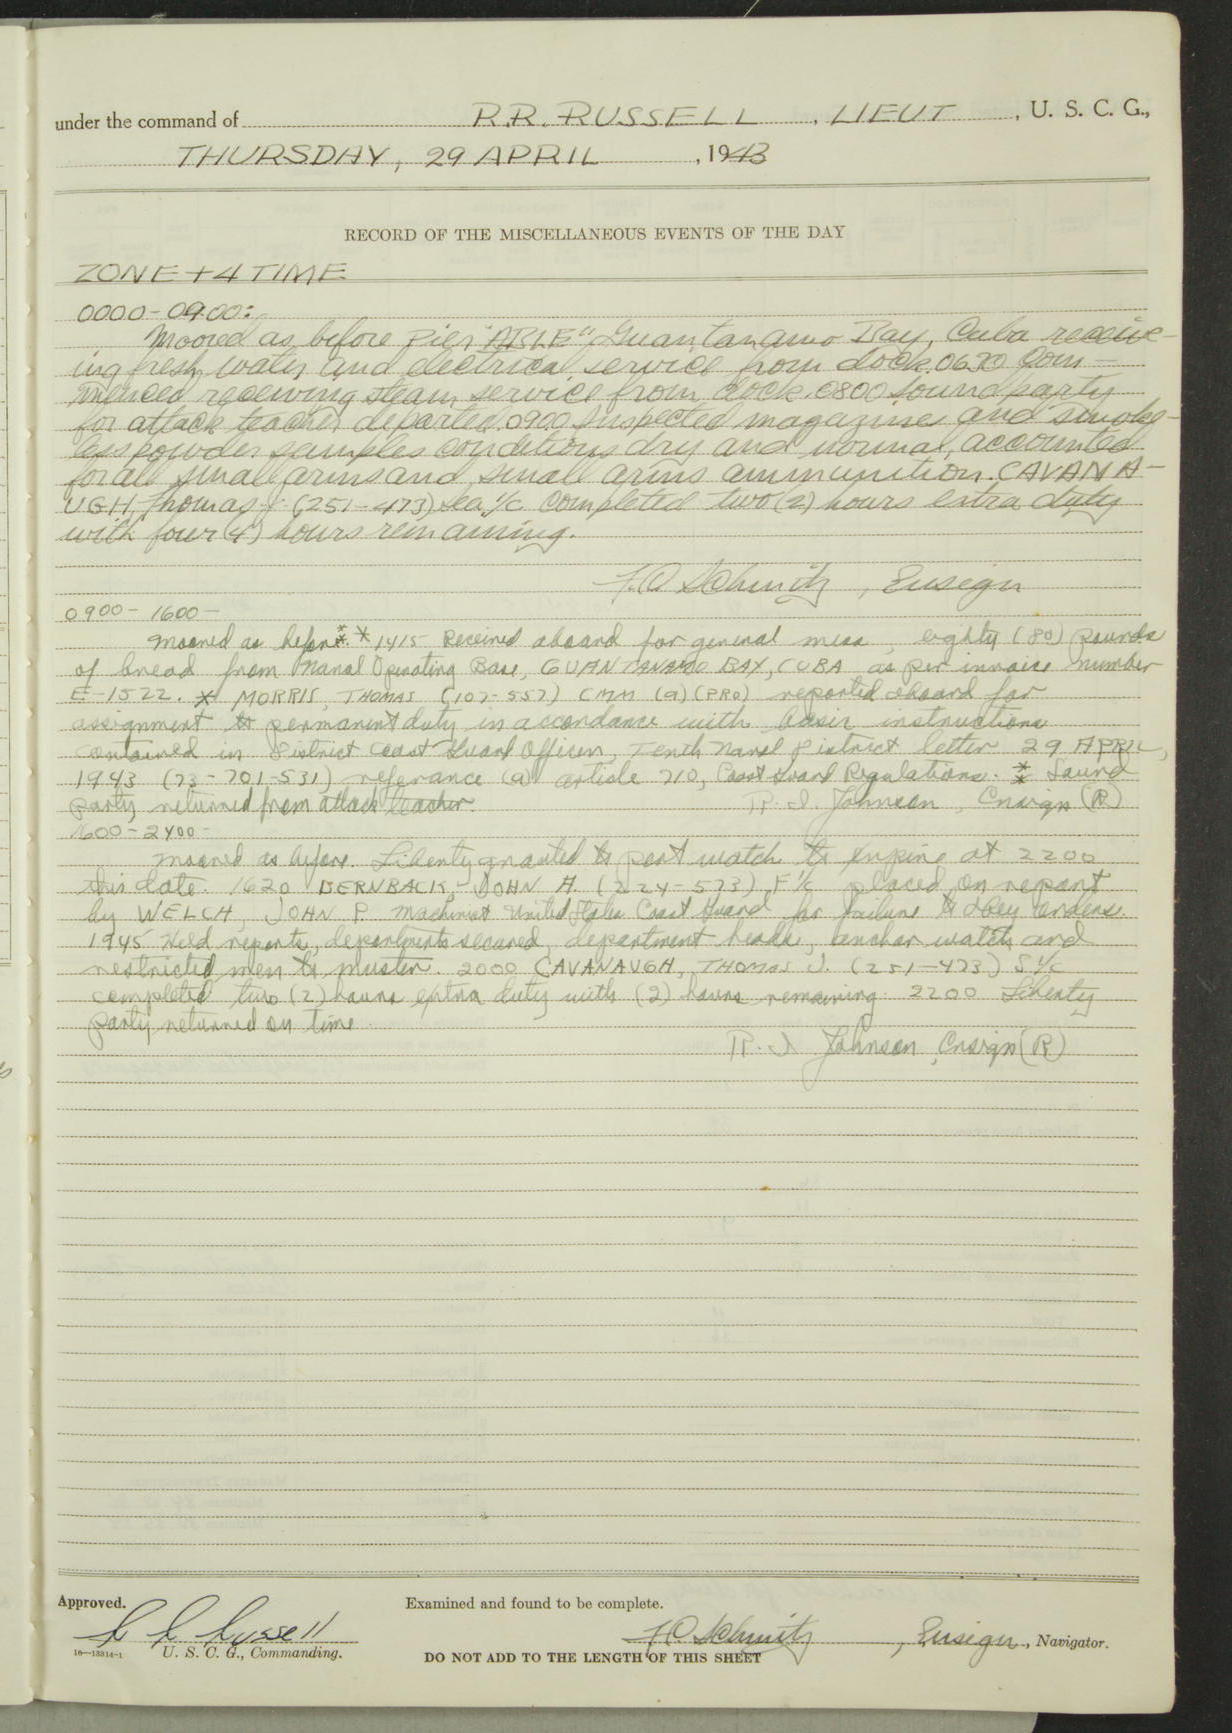 under the command of R.R. RUSSELL, LIEUT, U. S. C. G.,
THURSDAY, 29 APRIL, 1943
RECORD OF THE MISCELLANEOUS EVENTS OF THE DAY
ZONE +4 TIME
0000-0900:
Moored as before Pier "ABLE" Guantanamo Bay, Cuba receiv-
ing fresh water and electrical service from dock. 0630 Com-
menced receiving steam service from dock. 0800 Sound party
for attack teacher departed. 0900 Inspected magazines and smoke-
less powder samples conditions dry and normal, accounted
for all small arms and small arms ammunition. CAVANA-
UGH, Thomas J. (251-473) Sea 1/c completed two (2) hours extra duty
with four (4) hours remaining.
F.C. Schmitz, Ensign
0900-1600-
Moored as before. ** 1415 Received aboard for general mess, eighty (80) pounds
of bread from Naval Operating Base, GUANTANAMO BAY, CUBA as per invoice number
E-1522. * MORRIS, THOMAS (107-557) CMM (a) (PRO) reported aboard for
assignment to permanent duty in accordance with basic instructions
contained in District Coast Guard Officer, Tenth Naval District letter 29 APRIL,
1943 (73-701-531) referance (a) article 710, Coast Guard Regulations. ** Sound
Party returned from attack teacher. R. J. Johnson, Ensign (R)
1600-2400-
Moored as before. Liberty granted to port watch to expire at 2200
this date. 1620 BERNBACK, JOHN A. (224-573) F1/c placed on report
by WELCH, JOHN P. Machinist United States Coast Guard for failure to obey orders.
1945 Held reports, departments secured, department heads, anchor watch and
restricted men to muster. 2000 CAVANAUGH, THOMAS J. (251-473) S1/c
completed two (2) hours extra duty with (2) hours remaining. 2200 Liberty
party returned on time.
R. J. Johnson, Ensign (R)
Approved. Examined and found to be complete.
R R Russell F.C. Schmitz, Ensign, Navigator.
16-13314-1 U. S. C. G., Commanding. DO NOT ADD TO THE LENGTH OF THIS SHEET